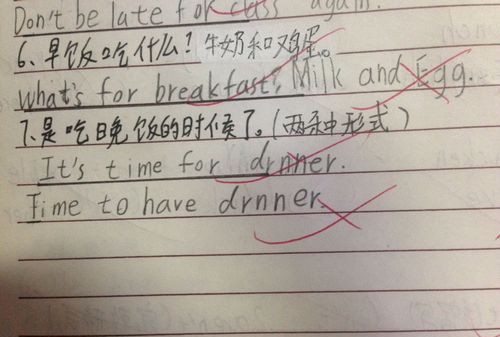 Don't be late for class again.
6、早饭吃什么?牛奶和鸡蛋。
What's for breakfast? Milk and Egg.
7、是吃晚饭的时候了。(两种形式)
It's time for drnner.
Time to have drnner.